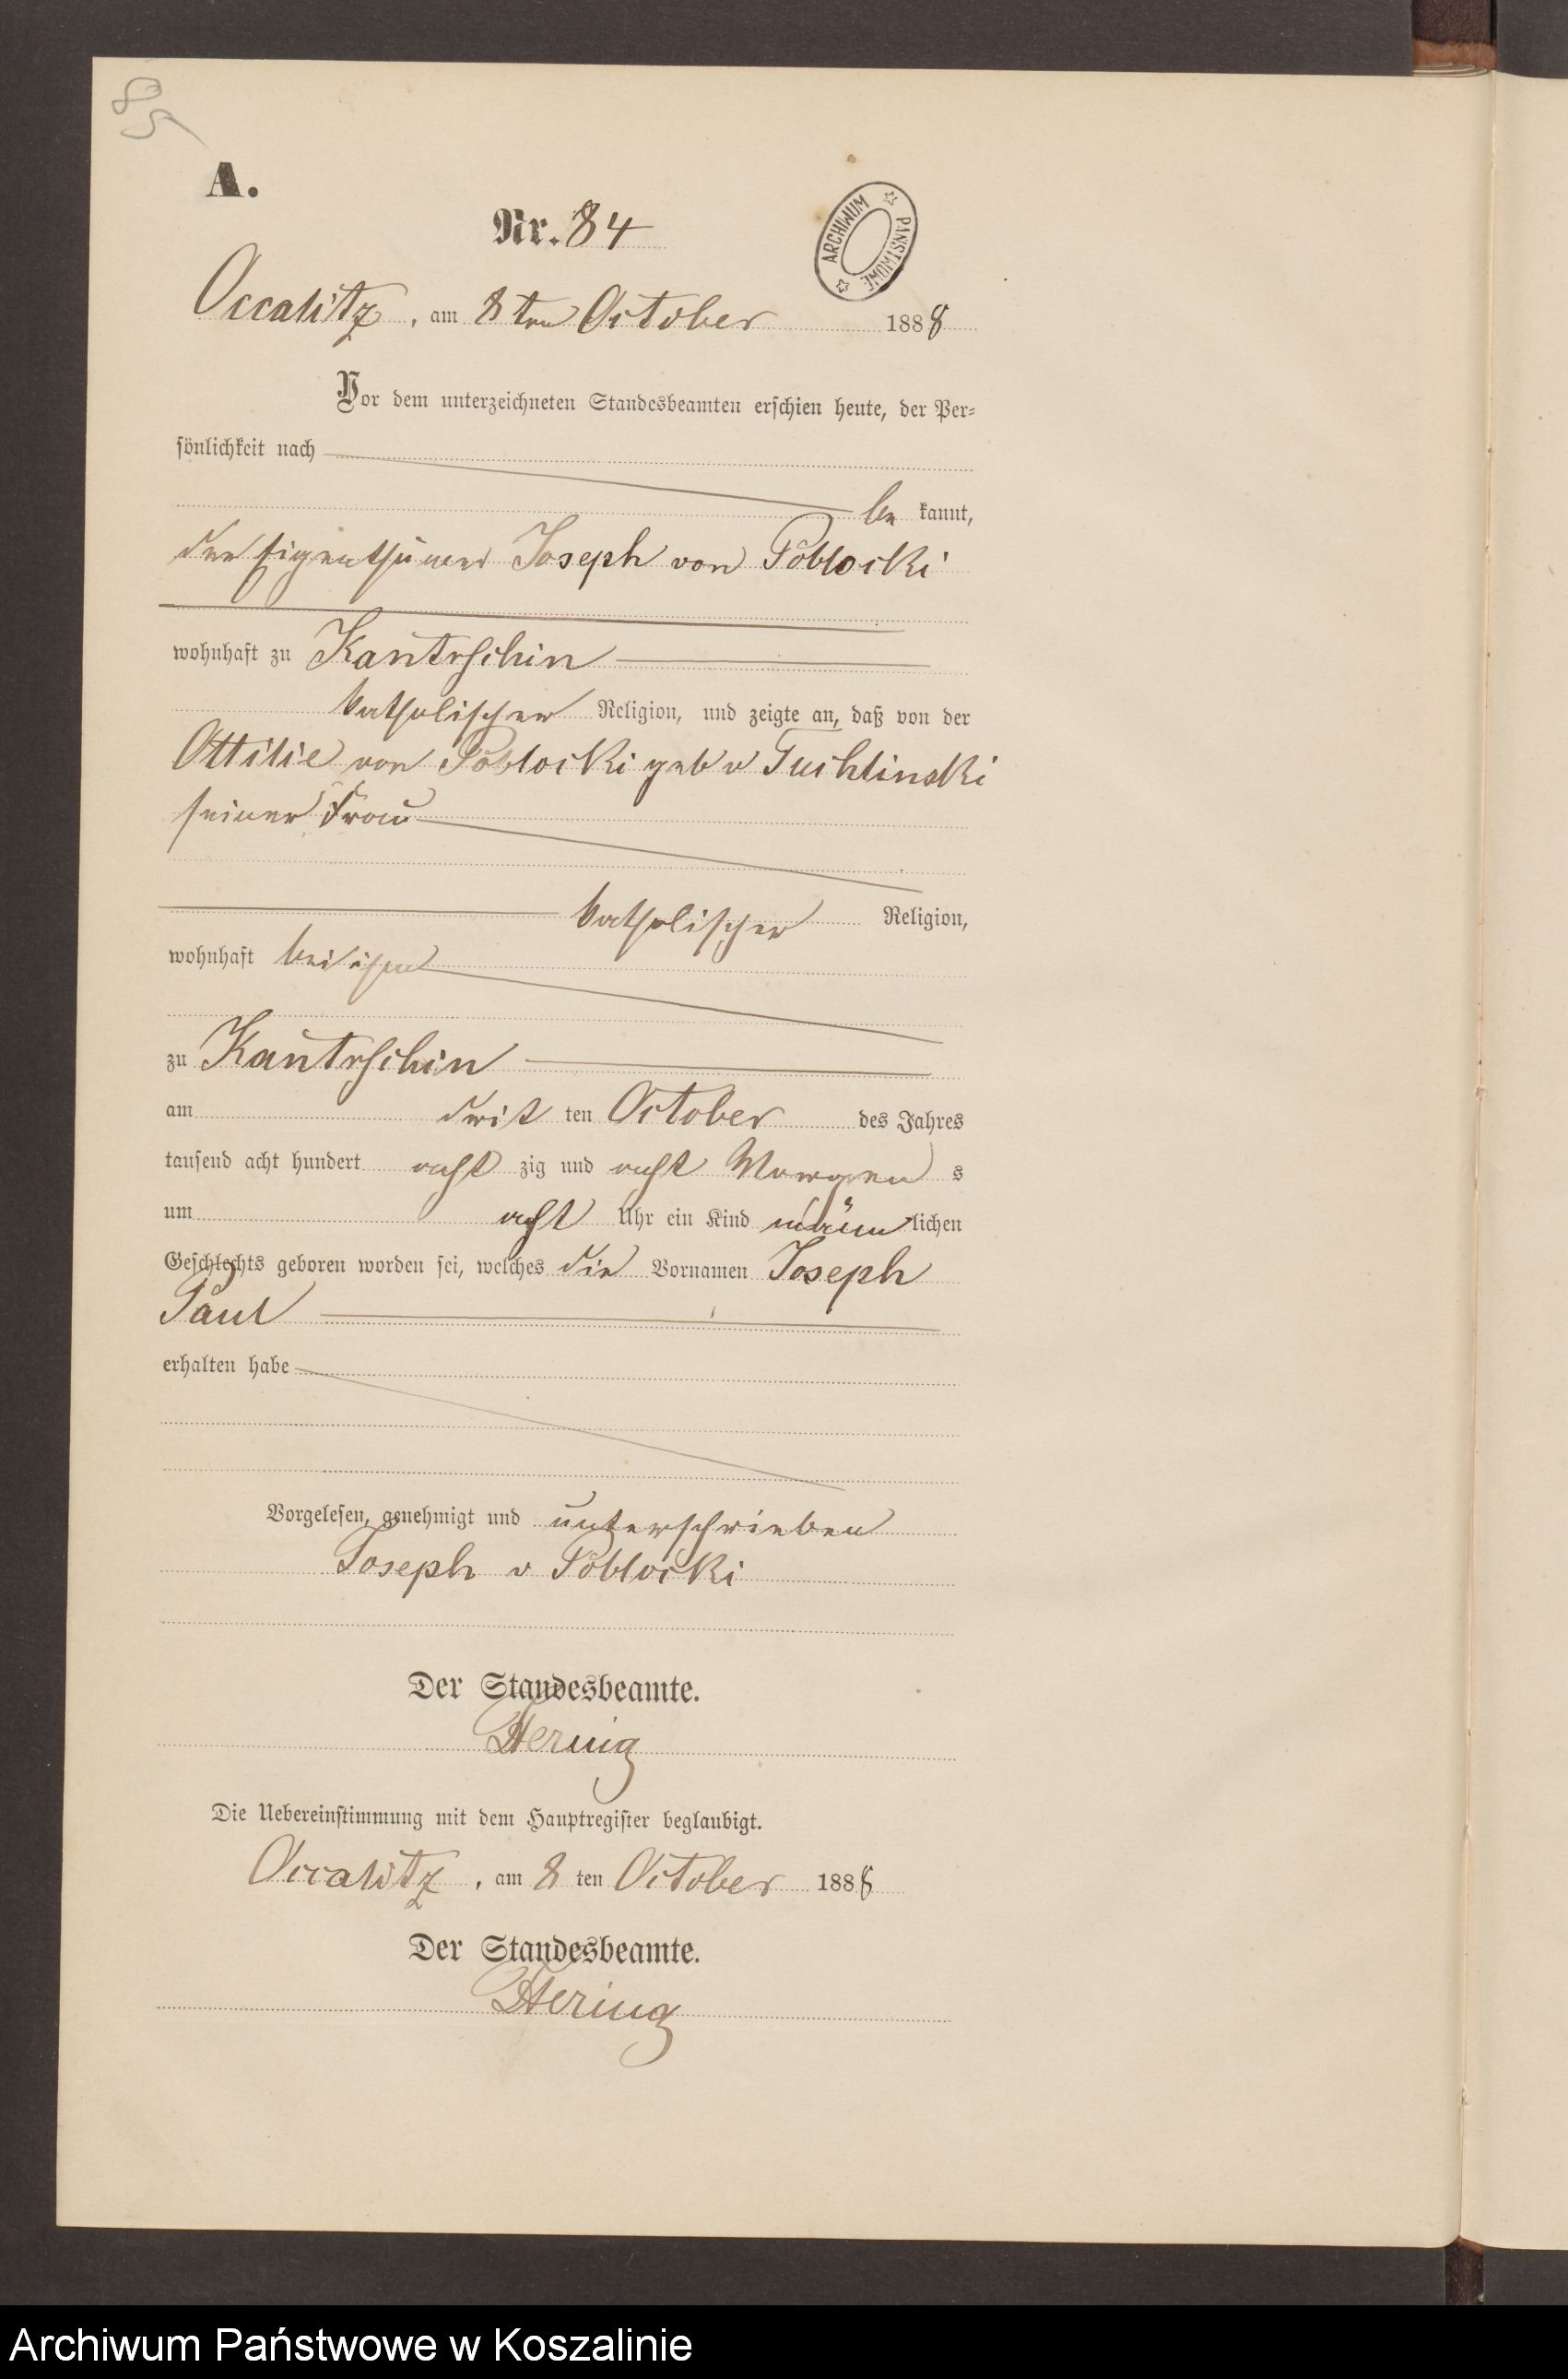 85
A.
Nr. 84
ARCHIWUM PAŃSTWOWE
Occalitz, am 8ten October 1888
Vor dem unterzeichneten Standesbeamten erschien heute, der Per=
sönlichkeit nach
be kannt,
der Eigenthümer Joseph von Poblocki
wohnhaft zu Kantrschin
katholischer Religion, und zeigte an, daß von der
Ottilie von Poblocki geb v Tuchlinski
seiner Frau
katholischer Religion,
wohnhaft bei ihm
zu Kantrschin
am drit ten October des Jahres
tausend acht hundert acht zig und acht Morgen s
um acht Uhr ein Kind männ lichen
Geschlechts geboren worden sei, welches die Vornamen Joseph
Paul
erhalten habe
Vorgelesen, genehmigt und unterschrieben
Joseph v Poblocki
Der Standesbeamte.
Hering
Die Uebereinstimmung mit dem Hauptregister beglaubigt.
Occalitz, am 8 ten October 1888
Der Standesbeamte.
Hering
Archiwum Państwowe w Koszalinie